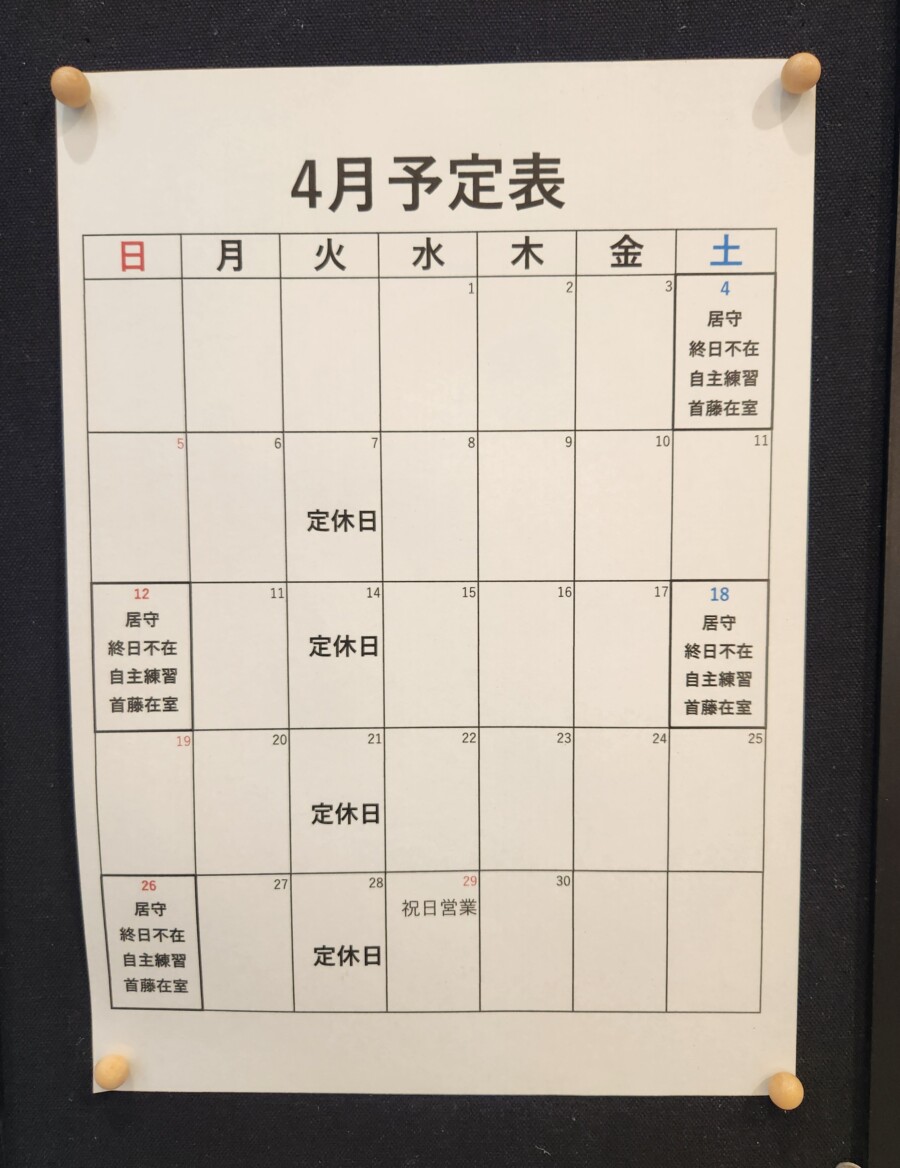 4月予定表
日 月 火 水 木 金 土
1 2 3 4
居守
終日不在
自主練習
首藤在室
5 6 7 8 9 10 11
定休日
12 11 14 15 16 17 18
居守 定休日 居守
終日不在 終日不在
自主練習 自主練習
首藤在室 首藤在室
19 20 21 22 23 24 25
定休日
26 27 28 29 30
居守 祝日営業
終日不在 定休日
自主練習
首藤在室